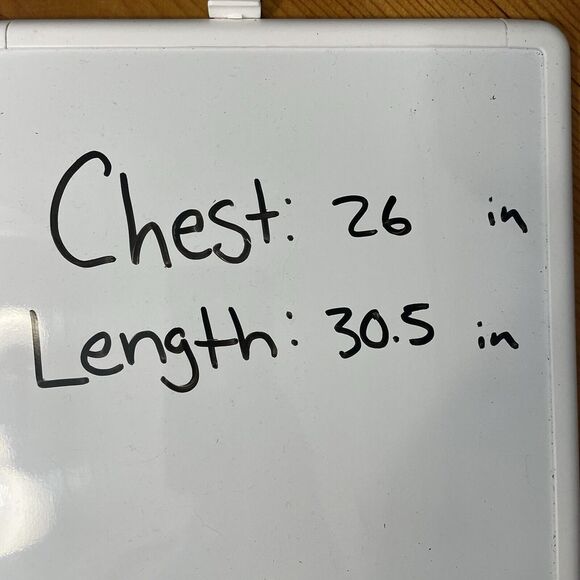 Chest: 26 in
Length: 30.5 in